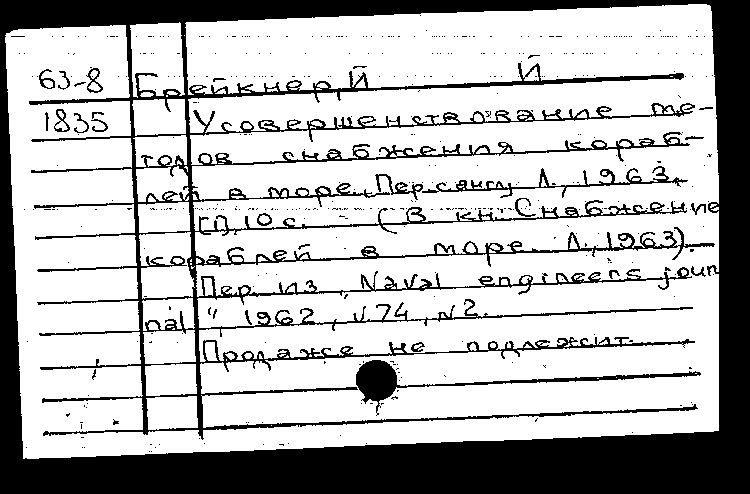 63-8 Брейкнер, Й Й
1835 Усовершенствование ме-
тодов снабжения кораб-
лей в море. Пер. с англ. Л., 1963.
[1], 10 с. (В кн: Снабжение
кораблей в море. Л., 1963).
Пер. из „Naval engineers jour
nal“, 1962, v.74, N2.
Продаже не подлежит.